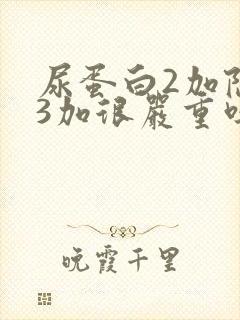 尿蛋白2加隐
3加很严重吗
晚霞千里